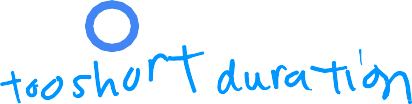 too short duration